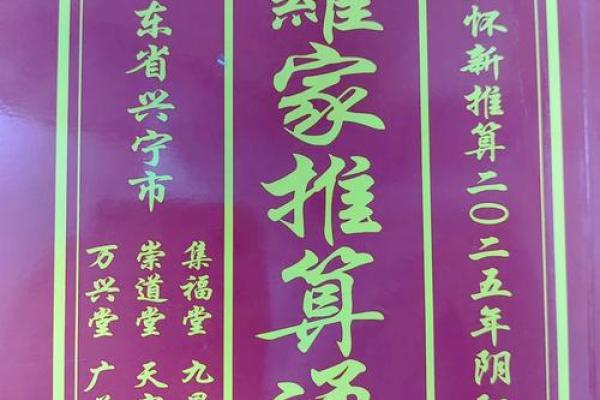 怀新推算二〇二五年阴
羅家推算通
东省兴宁市
集福堂 九
崇道堂 天
万兴堂 广